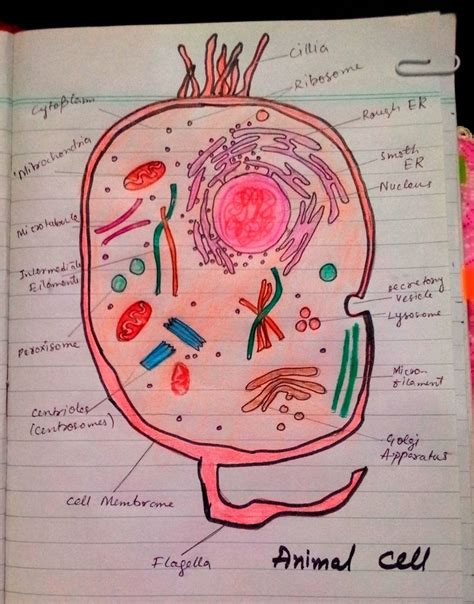 Cillia
Ribosome
Cytoplasm
Rough ER
Mitochondria
Smoth
ER
Nucleus
Microtubule
Intermediate
Filaments
secretory
vesicle
Lysosome
Peroxisome
Micro-
filament
Centrioles
(Centrosomes)
Golgi
Apparatus
Cell Membrane
Flagella
Animal cell